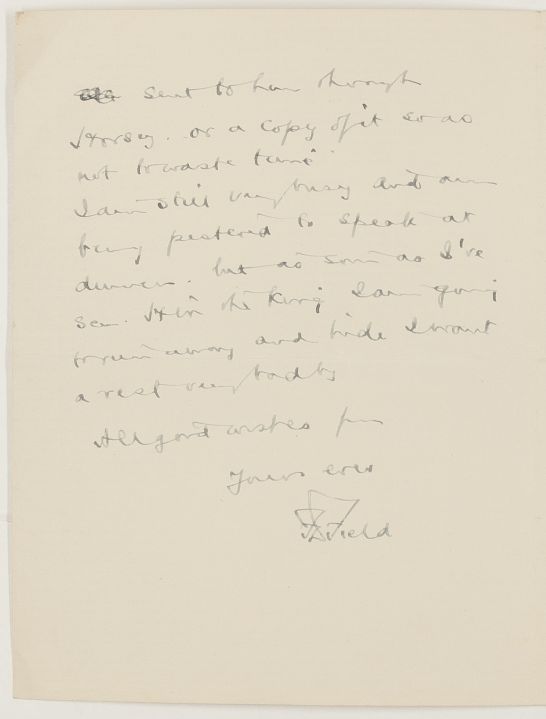 sent to him through
Horsey. or a copy of it so as
not to waste time
I am still very busy and am
being pestered to speak at
dinners. but as soon as I've
seen the King I am going
to run away and hide I want
a rest very badly
All good wishes from
Yours ever
Field